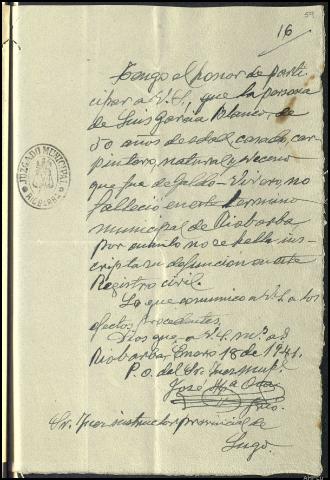 16
Tengo el honor de parti
cipar a V.S., que la persona
de Luis García Blanco, de
50 años de edad, casado, car
pintero, natural y vecino
que fue de Galdo-Vivero, no
falleció en este término
municipal de Riobarba
por cuanto no se halla ins-
cripta su defunción en este
Registro civil.
Lo que comunico a V.S. a los
efectos procedentes.
Dios que a V.S. m.s a.s
Riobarba, Enero 18 de 1941.
P.O. del Sr. Juez mupl.
José Mª
Srio.
Sr. Juez instructor provincial de
Lugo.
JUZGADO MUNICIPAL
RIOBARBA